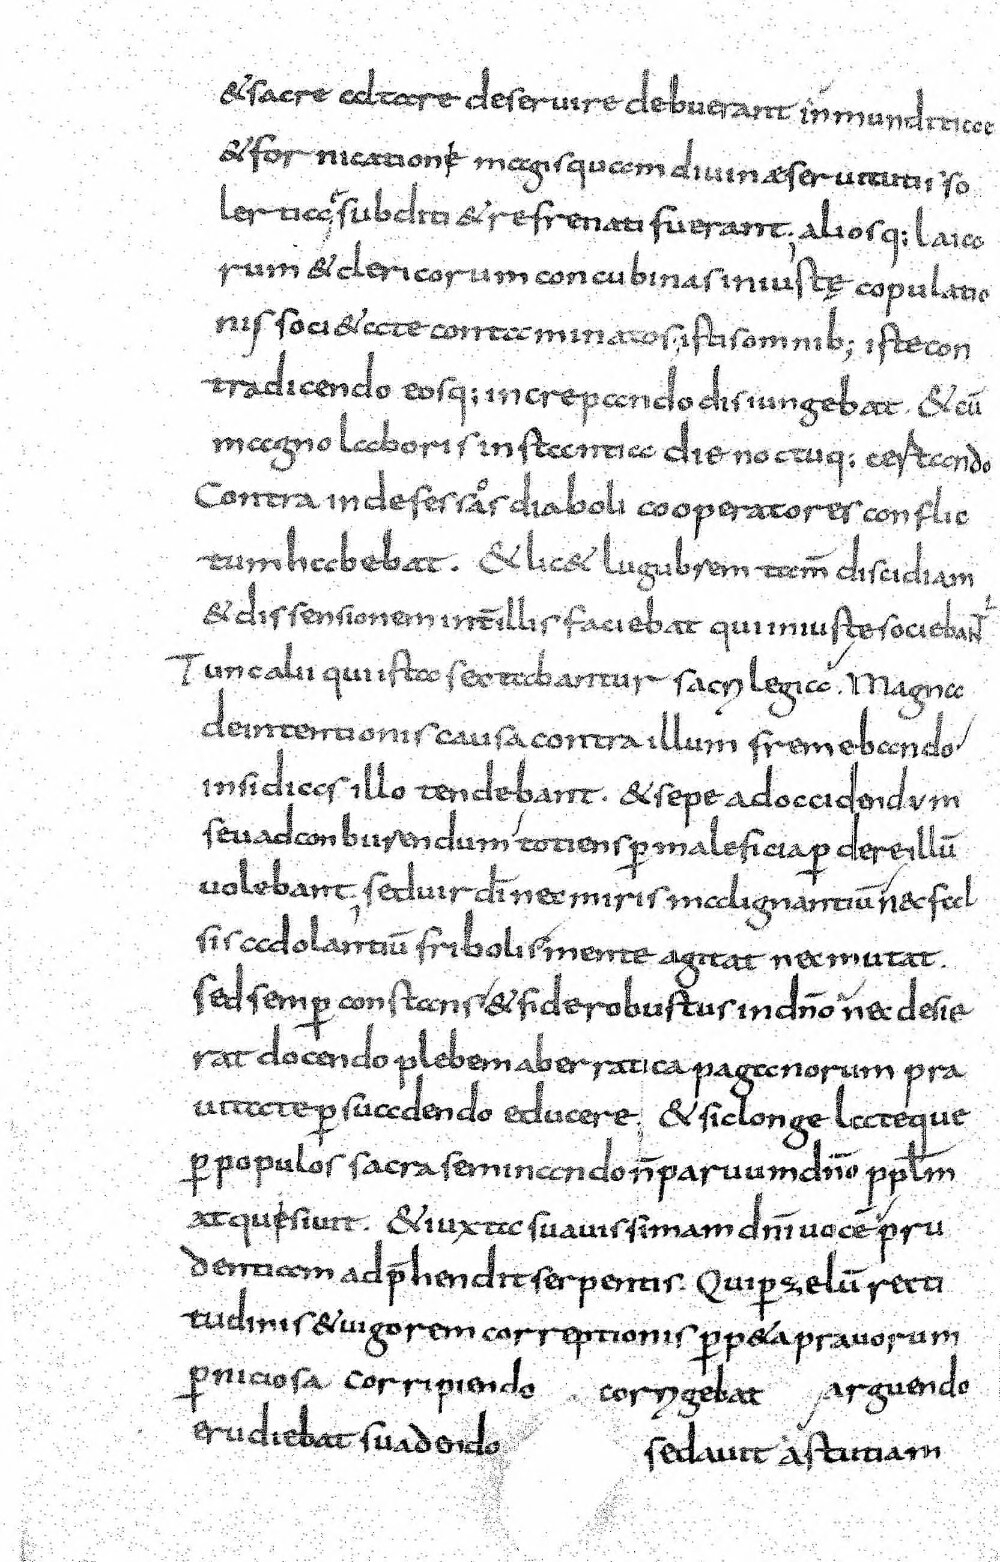 & sacre altare deseruire debuerant inmunditiae
& fornicatione magis quam diuinæ seruitutii so
lertia subditi & refrenati fuerant; aliosq; laico
rum & clericorum concubinas iniustę copulatio
nis soci&ate contaminatos; istis omnib; iste con
tradicendo eosq; increpando disiungebat. & cū
magno laboris instantia die noctuq; certando
Contra indefessos diaboli cooperatores conflic
tum habebat. & lic& lugubrem tam̄ discidiam
& dissensionem int̄ illis faciebat qui iniustę sociebant
Tunc alii qui ista sectabantur sacrylegia. Magna
de intentionis causa contra illum fremebando
insidias illo tendebant. & sepe ad occidendum
seu ad conburendum totiens p̲ maleficia p̲dere illū
uolebant, sed uir dī nec miris malignantiū nec fal
sis adolantiū fribolis mente agitat nec mutat.
sed semp̲ constans & fide robustus in dn̄o nec desie
rat docendo plebem ab erratica paganorum pra
uitate p̲suadendo educere. & sic longe lateque
p̲ populos sacra seminando n̄ paruum dn̄o ppl̄m
atquesiuit. & iuxta suauissimam dn̄i uocē pru
dentiam adp̄hendit serpentis. Qui p̲ zelū recti
tudinis & uigorem correptionis p̲p&a prauorum
p̲niciosa corripiendo corrygebat arguendo
erudiebat suadendo sedauit astutiam